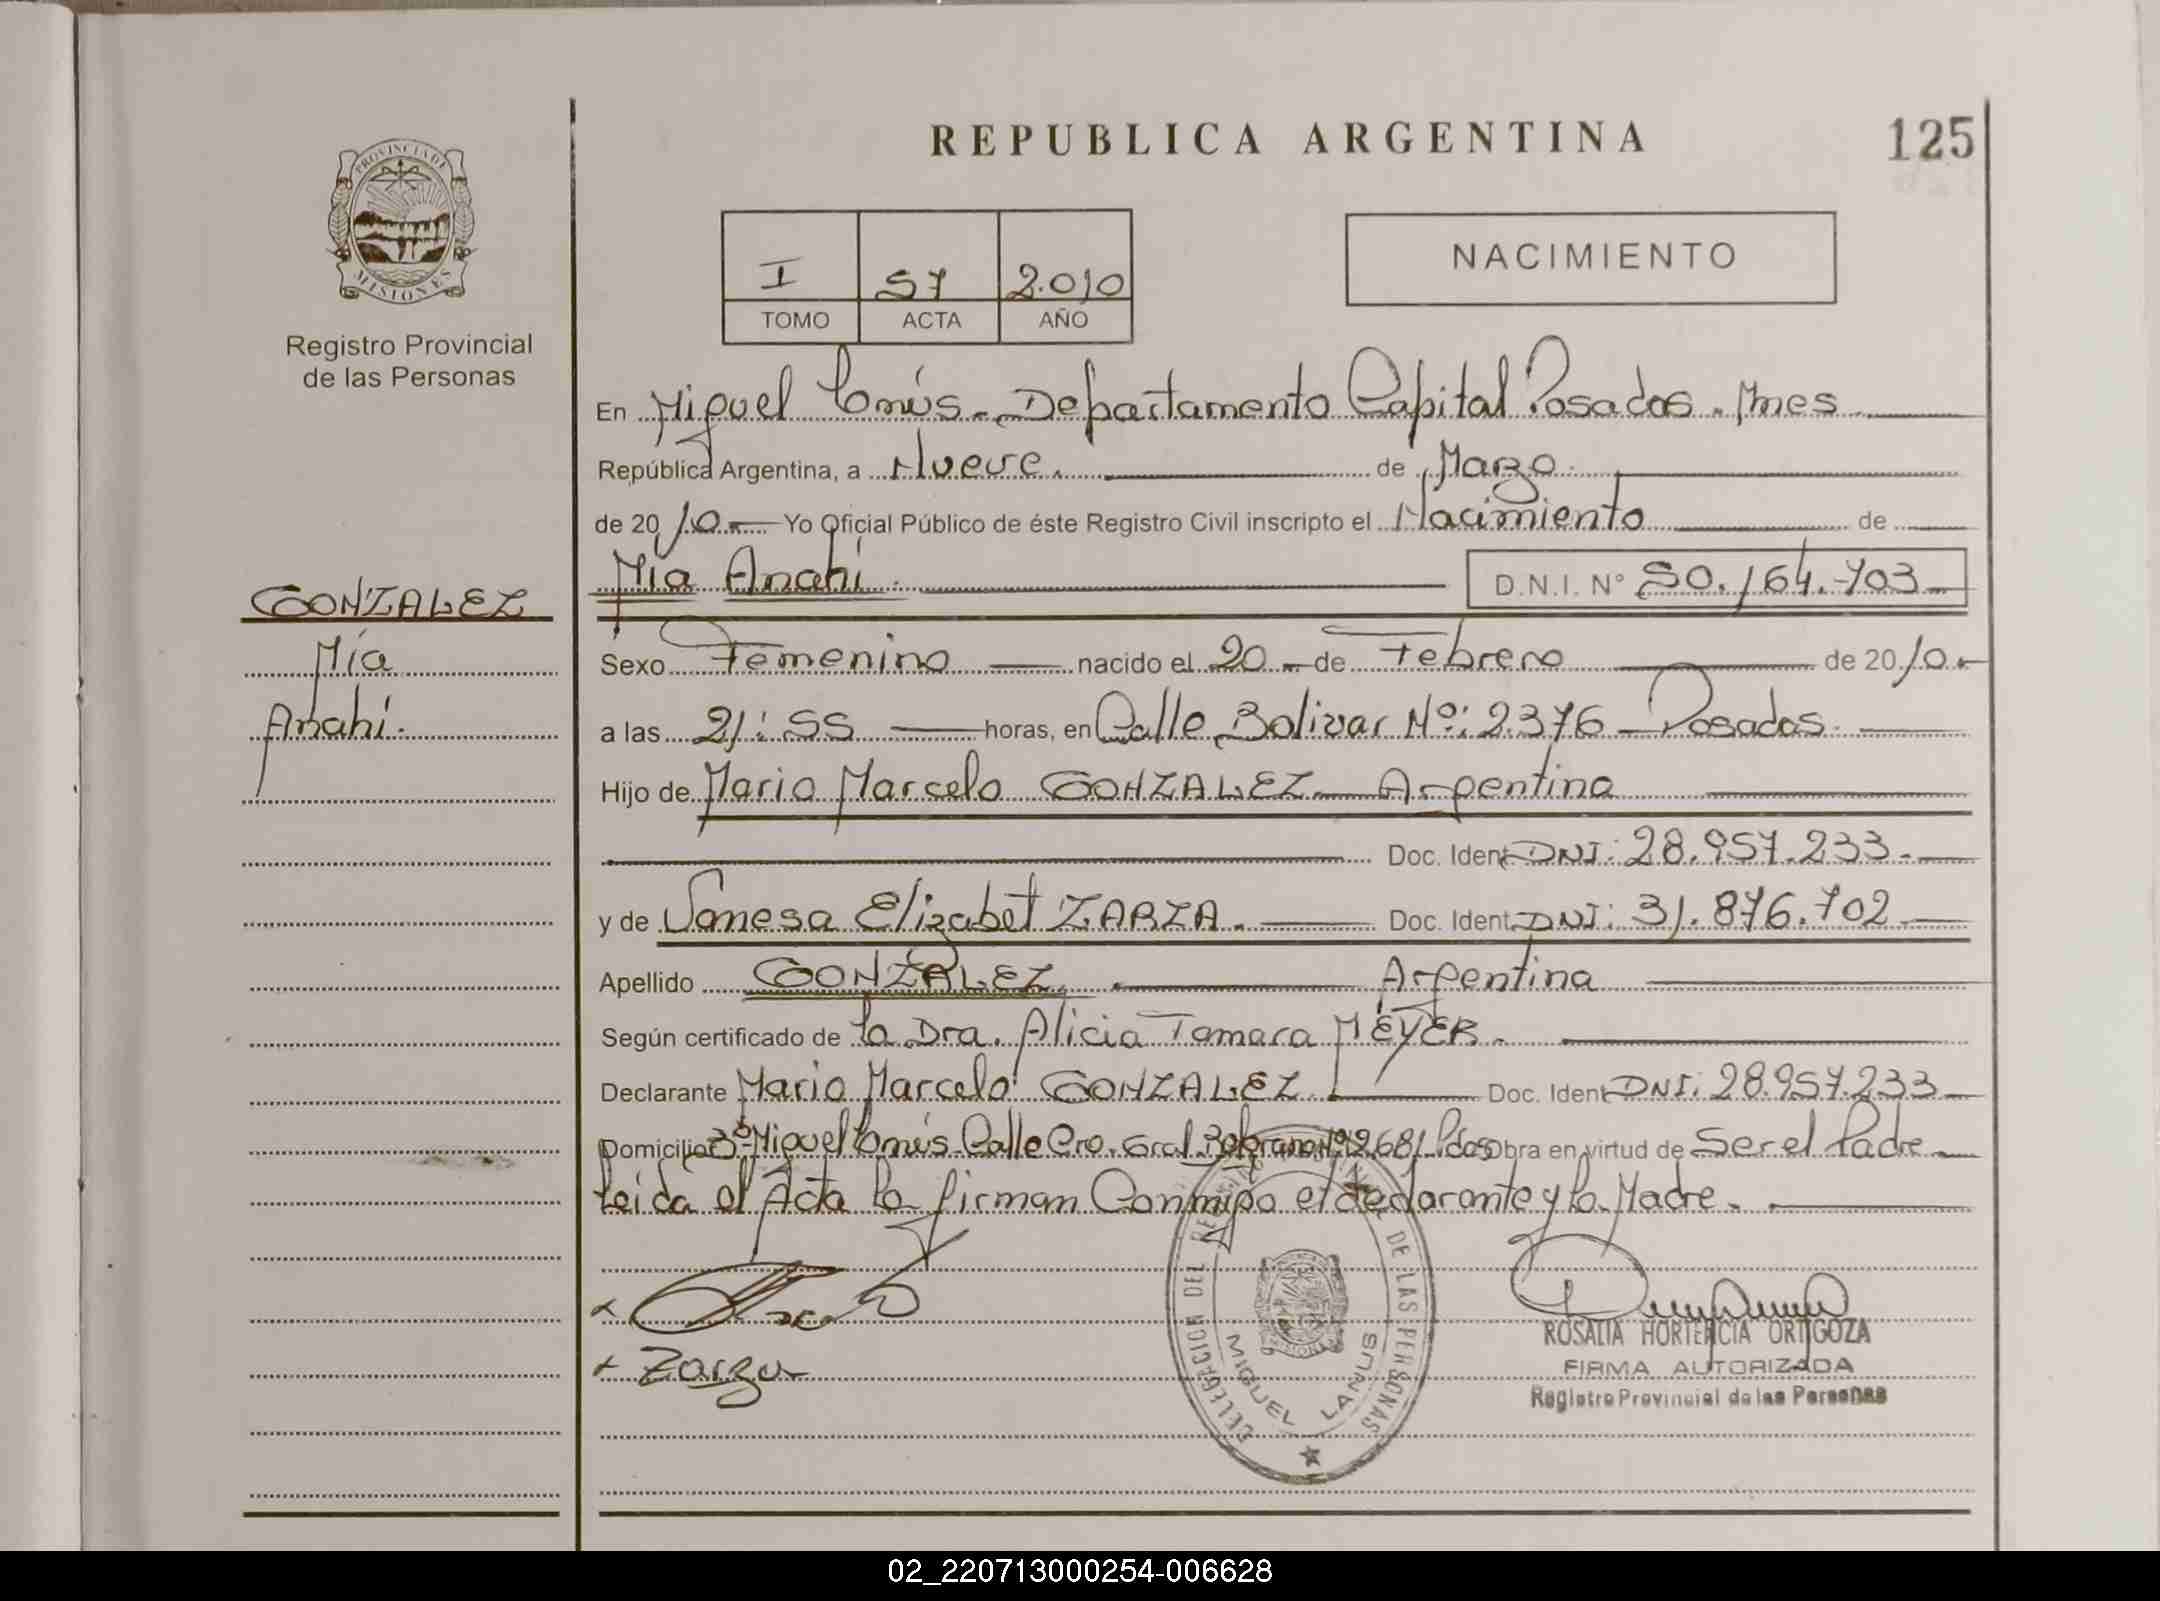 REPUBLICA ARGENTINA
125
PROVINCIA DE
MISIONES
Registro Provincial
de las Personas
I 57 2.010
TOMO ACTA AÑO
NACIMIENTO
En Miguel Lanús - Departamento Capital Posadas. Mnes
República Argentina, a Nueve. de Marzo.
de 2010.- Yo Oficial Público de éste Registro Civil inscripto el Nacimiento de
Mía Anahí. D.N.I. N° 50.164.703
GONZALEZ
Mía
Anahí.
Sexo Femenino nacido el 20 - de Febrero de 2010.-
a las 21:55 horas, en Calle Bolivar Nº: 2.376 - Posadas.
Hijo de Mario Marcelo GONZALEZ - Argentina
Doc. Ident DNI: 28.957.233.-
y de Vanesa Elizabet ZARZA. Doc. Ident DNI: 31.876.702
Apellido GONZALEZ. Argentina
Según certificado de la Dra. Alicia Tamara MEYER.
Declarante Mario Marcelo GONZALEZ Doc. Ident DNI: 28.957.233
Domicilio Bº Miguel Lanús - Calle Cro. Gral. Nº 2.681 Pdas Obra en virtud de Ser el Padre
Leida el Acta la firman Conmigo el declarante y la Madre.
Zarza
DELEGACION DEL REGISTRO PROVINCIAL DE LAS PERSONAS
MIGUEL LANUS
ROSALIA HORTENCIA ORTIGOZA
FIRMA AUTORIZADA
Registro Provincial de las Personas
02_220713000254-006628